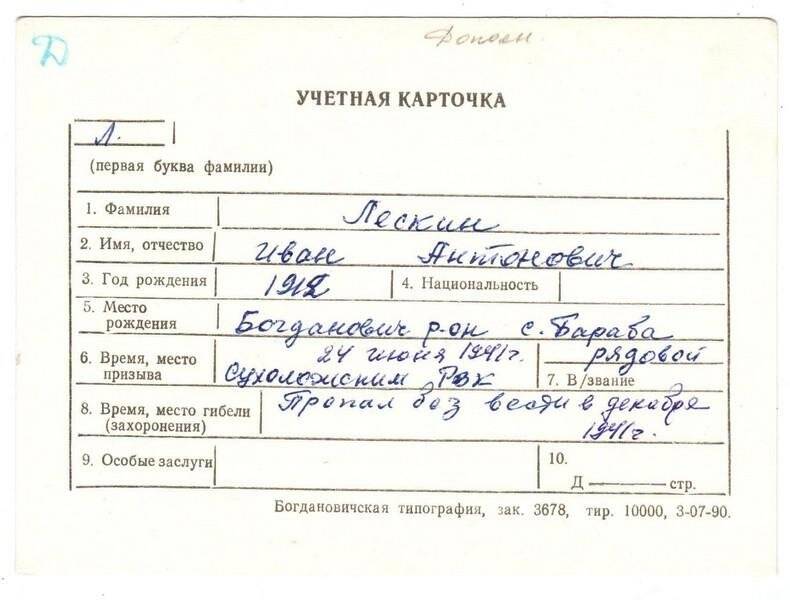 Д
Дополн
УЧЕТНАЯ КАРТОЧКА
Л.
(первая буква фамилии)
1. Фамилия Лескин
2. Имя, отчество Иван Антонович
3. Год рождения 1912 4. Национальность
5. Место рождения Богданович р-он с. Бараба
6. Время, место призыва 24 июня 1941г. Сухоложским РВК
7. В/звание рядовой
8. Время, место гибели (захоронения) Пропал без вести в декабре 1941г.
9. Особые заслуги
10. Д стр.
Богдановичская типография, зак. 3678, тир. 10000, 3-07-90.